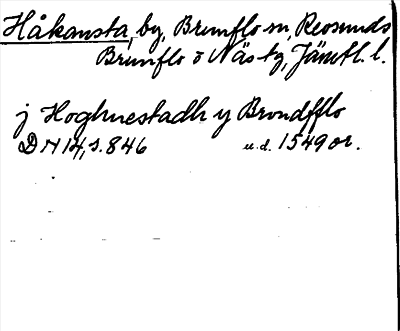 Håkansta, by, Brunflo sn, Revsunds
Brunflo o Näs tg, Jämtl. l.
j Hoghnestadh y Brondfflo
DN 14, s. 846 u.d. 1549 or.